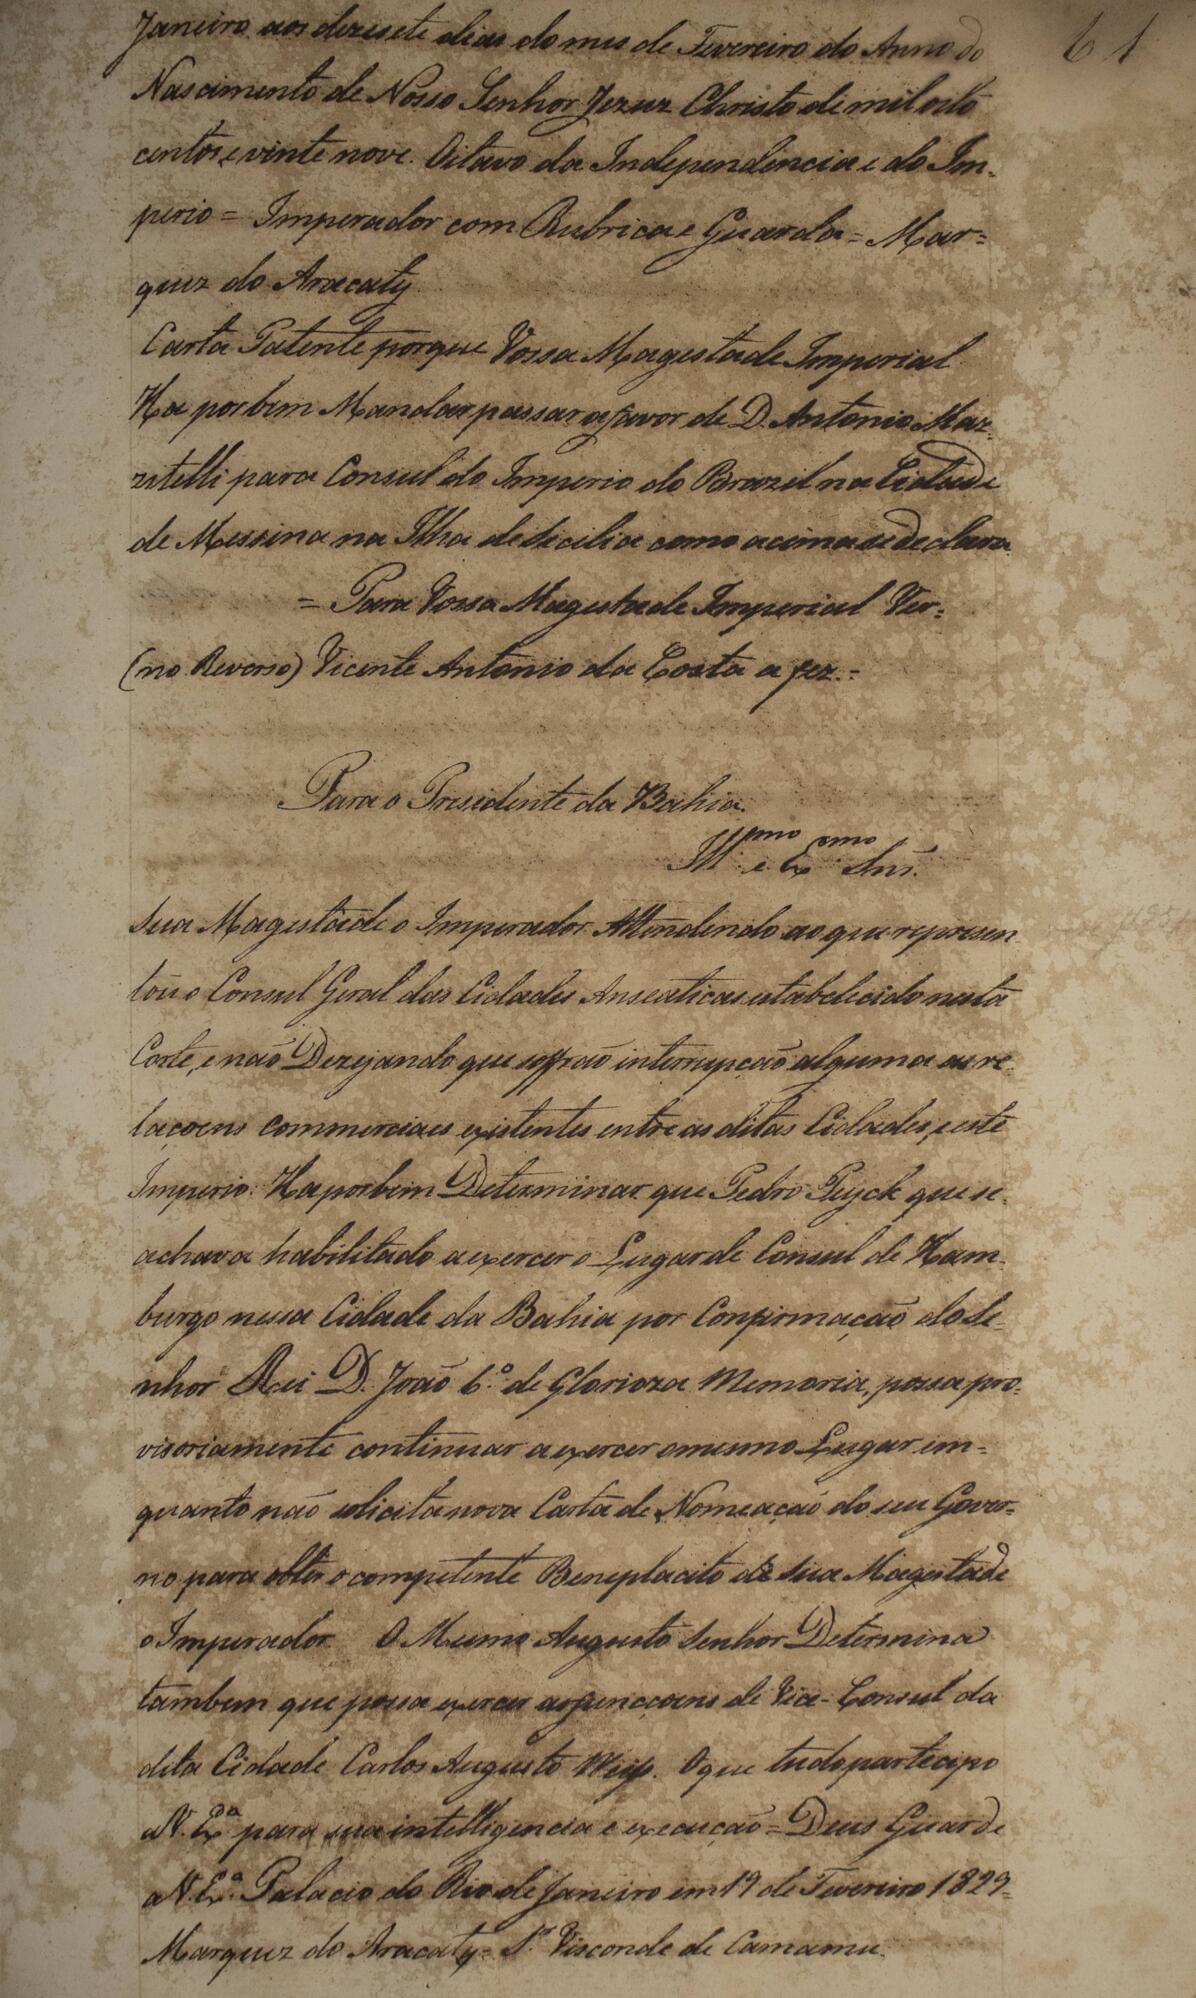 61
Janeiro aos dezesete dias do mes de Fevereiro do Anno do
Nascimento de Nosso Senhor Jezuz Christo de mil oito
centos, e vinte nove. Oitavo da Independencia e do Im-
perio = Imperador com Rubrica e Guarda = Mar=
quez do Aracaty
Carta Patente porque Vossa Magestade Imperial
Ha por bem Mandar passar a favor de D. Antonio Maz-
zitelli para Consul do Imperio do Brazil na Cidade
de Messina na Ilha de Sicilia como acima se declara
= Para Vossa Magestade Imperial Ver=
(no Reverso) Vicente Antonio da Costa a fez.=
Para o Presidente da Bahia.
Illmo e Exmo Snr.
Sua Magestade o Imperador Attendendo ao que represen
tou o Consul Geral das Cidades Anseaticas estabelecido nesta
Corte, e não Dezejando que soffrão interrupção alguma as re-
laçoens commerciaes existentes entre as ditas Cidades, e este
Imperio. Ha por bem Determinar que Pedro Peyck que se
achava habilitado a exercer o Lugar de Consul de Ham-
burgo nessa Cidade da Bahia por Confirmação do Se-
nhor Rei D. João 6.º de Glorioza Memoria, possa pro-
visoriamente continuar a exercer o mesmo Lugar em=
quanto não solicita nova Carta de Nomeação do seu Gover=
no para obter o competente Beneplacito de Sua Magestade
o Imperador. O Mesmo Augusto Senhor Determina
tambem que possa exercer as funcçoens de Vice-Consul da
dita Cidade Carlos Augusto O que tudo partecipo
a V. Exª para sua intelligencia e execução = Deus Guarde
a V. Exª. Palacio do Rio de Janeiro em 19 de Fevereiro 1829=
Marquez do Aracaty = Sr. Visconde de Camamu.